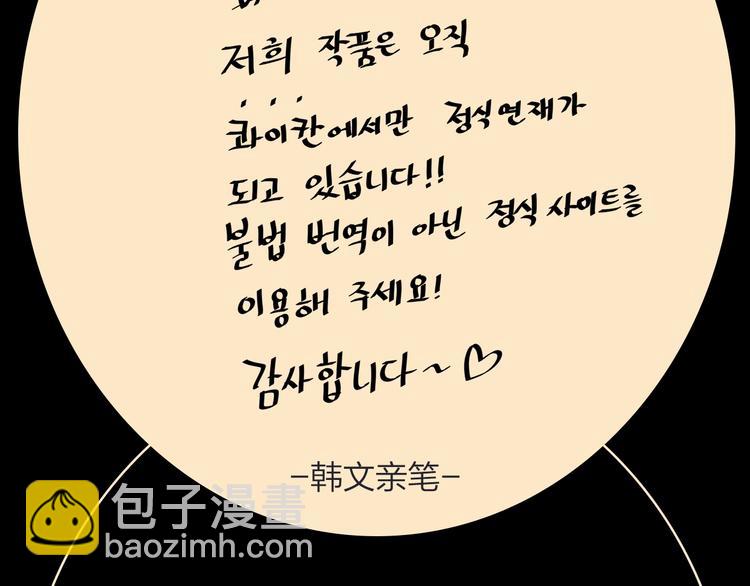 저희 작품은 오직
콰이칸에서만 정식연재가
되고 있습니다!!
불법 번역이 아닌 정식 사이트를
이용해 주세요!
감사합니다~♡
–韩文亲笔–
包子漫畫
baozimh.com